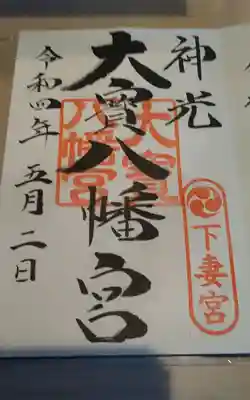 神光
大寳八幡宮
大寳八幡宮
下妻宮
令和四年五月二日